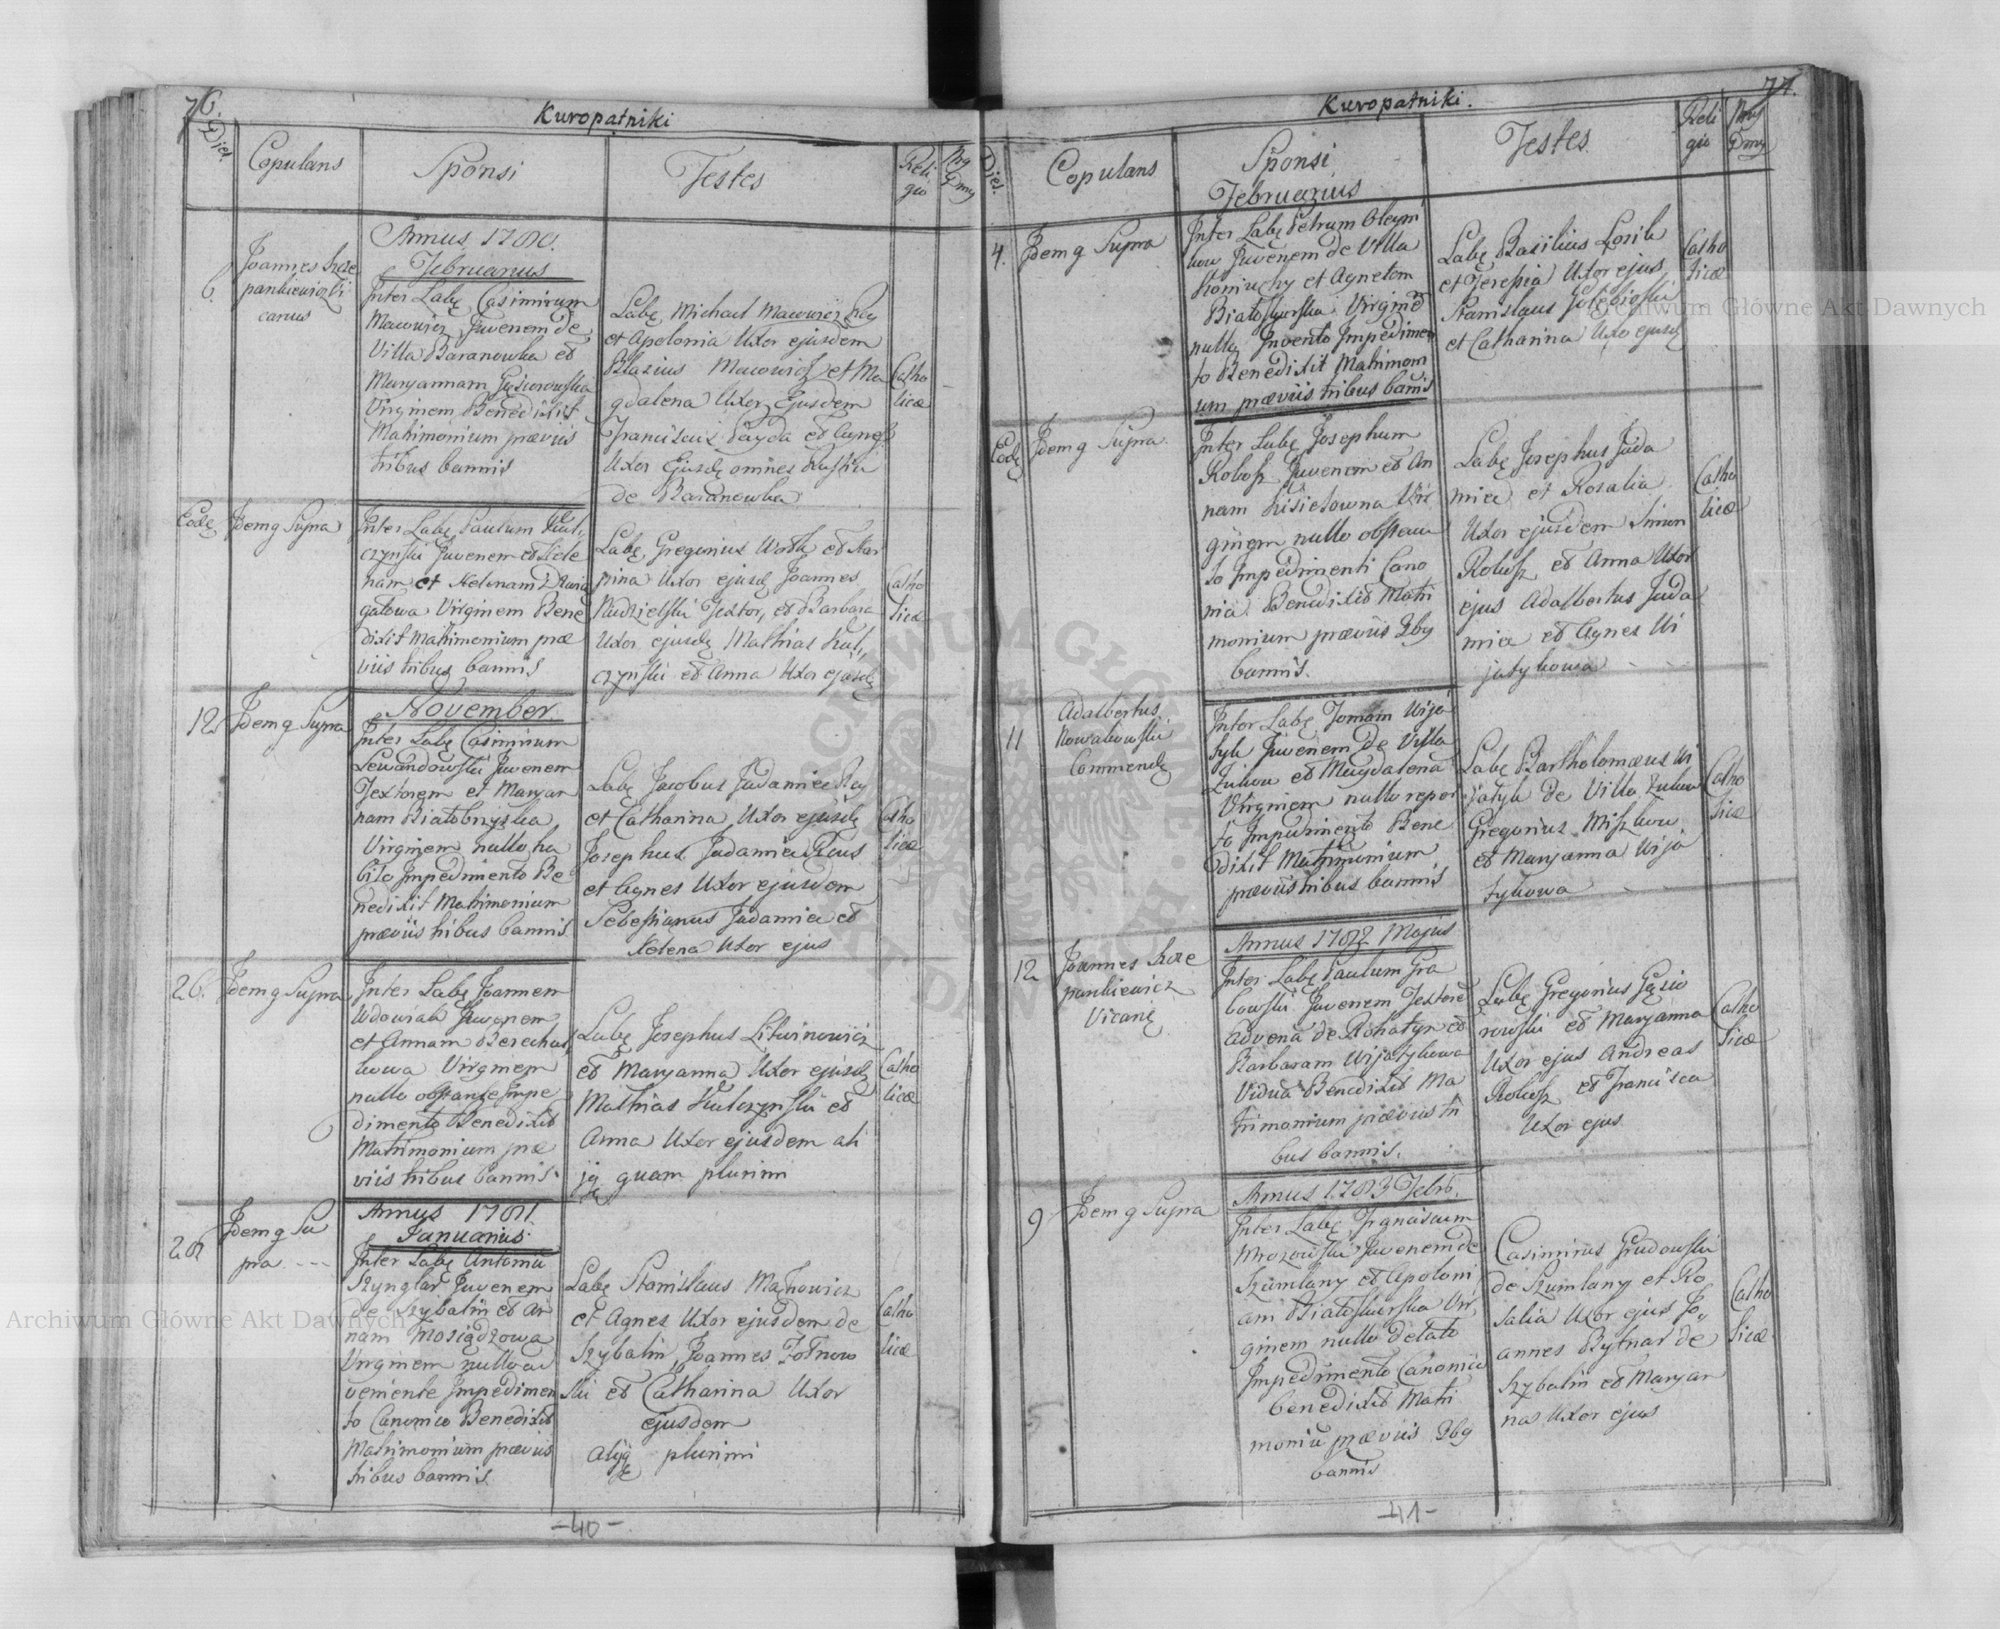 76.
Kuropatniki
Dies.
Copulans
Sponsi
Testes
Reli
gio
Nrg
Dmg
Annus 1780.
Februarius
6.
Joannes Szcze
pankiewicz Vi
carius
Inter Labę Casimirum
Macowicz Juvenem de
Villa Baranowka et
Maryannam Gąsiorowska
Virginem Benedixit
Matrimonium præviis
tribus bannis
Labę Michael Macowicz
et Apolonia Uxor ejusdem
Blasius Macowicz et Ma
gdalena Uxor Ejusdem
Franciscus Payda et Agnes
Uxor Ejusdę omnes
de Baranowka
Catho
licæ
Eodę
Idem q Supra
Inter Labę Paulum Kul
czynski Juvenem et Hele
nam et Helenam
gałowa Virginem Bene
dixit Matrimonium præ
viis tribus bannis
Labę Gregorius et Mar
rina Uxor ejusdę Joannes
Niedzielski Textor, et Barbara
Uxor ejusdę Mathias Kul
czynski et Anna Uxor ejusdę
Catho
licæ
November.
12.
Idem q Supra
Inter Labę Casimirum
Lewandowski Juvenem
Textorem et Maryan
nam Białobrzyska
Virginem nullo ha
bito Impedimento Be
nedixit Matrimonium
præviis tribus bannis
Labę Jacobus Judamiec
et Catharina Uxor ejusdę
Josephus Judamiec
et Agnes Uxor ejusdem
Sebestianus Judamiec et
Helena Uxor ejus
Catho
licæ
26.
Idem q Supra
Inter Labę Joannem
Wdowiak Juvenem
et Annam
Virginem
nullo obstante Impe
dimento Benedixit
Matrimonium præ
viis tribus bannis.
Labę Josephus Litwinowicz
et Maryanna Uxor ejusdę
Mathias Kulczynski et
Anna Uxor ejusdem ali
jq quam plurimi
Catho
licæ
Annus 1781.
Januarius.
28
Idem q Su
pra ---
Inter Labę Antoniū
Szynglar Juvenem
de Szybalin et An
nam Mosiądzowa
Virginem nullo ad
veniente Impedimen
to Canonico Benedixit
Matrimonium præviis
tribus bannis.
Labę Stanislaus Machowicz
et Agnes Uxor ejusdem de
Szybalin, Joannes
ski et Catharina Uxor
ejusdem
Alijq plurimi
Catho
licæ
-40-
77.
Kuropatniki.
Dies.
Copulans
Sponsi
Testes
Reli
gio
Nrg
Dmg
Februarius
4.
Idem q Supra
Inter Labę Petrum Oleyni
kow Juvenem de Villa
Koniuchy et Agnetem
Białoskurska Virginē
nullo Invento Impedimen
to Benedixit Matrimoni
um præviis tribus bannis
Labę Basilius
et Teressia Uxor ejus
Stanislaus Gołębioski
et Catharina Uxo ejusdę
Catho
licæ
Eodę
Idem q Supra
Inter Labę Josephum
Robosz Juvenem et An
nam Kisielowna Vir
ginem nullo obstan
to Impedimenti Cano
nia Benedixit Matri
monium præviis 3bg
bannis.
Labę Josephus Juda
miec et Rosalia
Uxor ejusdem Simon
Robosz et Anna Uxor
ejus Adalbertus Juda
miec et Agnes Wi
jatykowa
Catho
licæ
11
Adalbertus
Nowakowski
Commendę
Inter Labę Tomam Wija
tyk Juvenem de Villa
Zukow et Magdalena
Virginem nullo reper
to Impedimento Bene
dixit Matrimonium
præviis tribus bannis
Labę Bartholomæus Wi
jatyk de Villa Zukow
Gregorius Miszkow
et Maryanna Wija
tykowa
Catho
licæ
Annus 1782 Majus
12
Joannes Szcze
pankiewicz
Vicarię
Inter Labę Paulum Gra
bowski Juvenem Textorē
Advena de Rohatyn et
Barbaram Wijatykowa
Vidua Benedixit Ma
trimonium præviis tri
bus bannis.
Labę Gregorius Gąsio
rowski et Maryanna
Uxor ejus Andreas
Robosz et Francisca
Uxor ejus
Catho
licæ
Annus 1783 Febr.
9
Idem q Supra
Inter Labę Franciscum
Mrozowski Juvenem de
Szumlany et Apoloni
am Białoskurska Vir
ginem nullo detato
Impedimento Canonico
benedixit Matri
moniū præviis 3bg
bannis
Casimirus Grudowski
de Szumlany et Ro
salia Uxor ejus Jo
annes Bytnar de
Szybalin et Maryan
na Uxor ejus
Catho
licæ
-41-
Archiwum Główne Akt Dawnych
Archiwum Główne Akt Dawnych